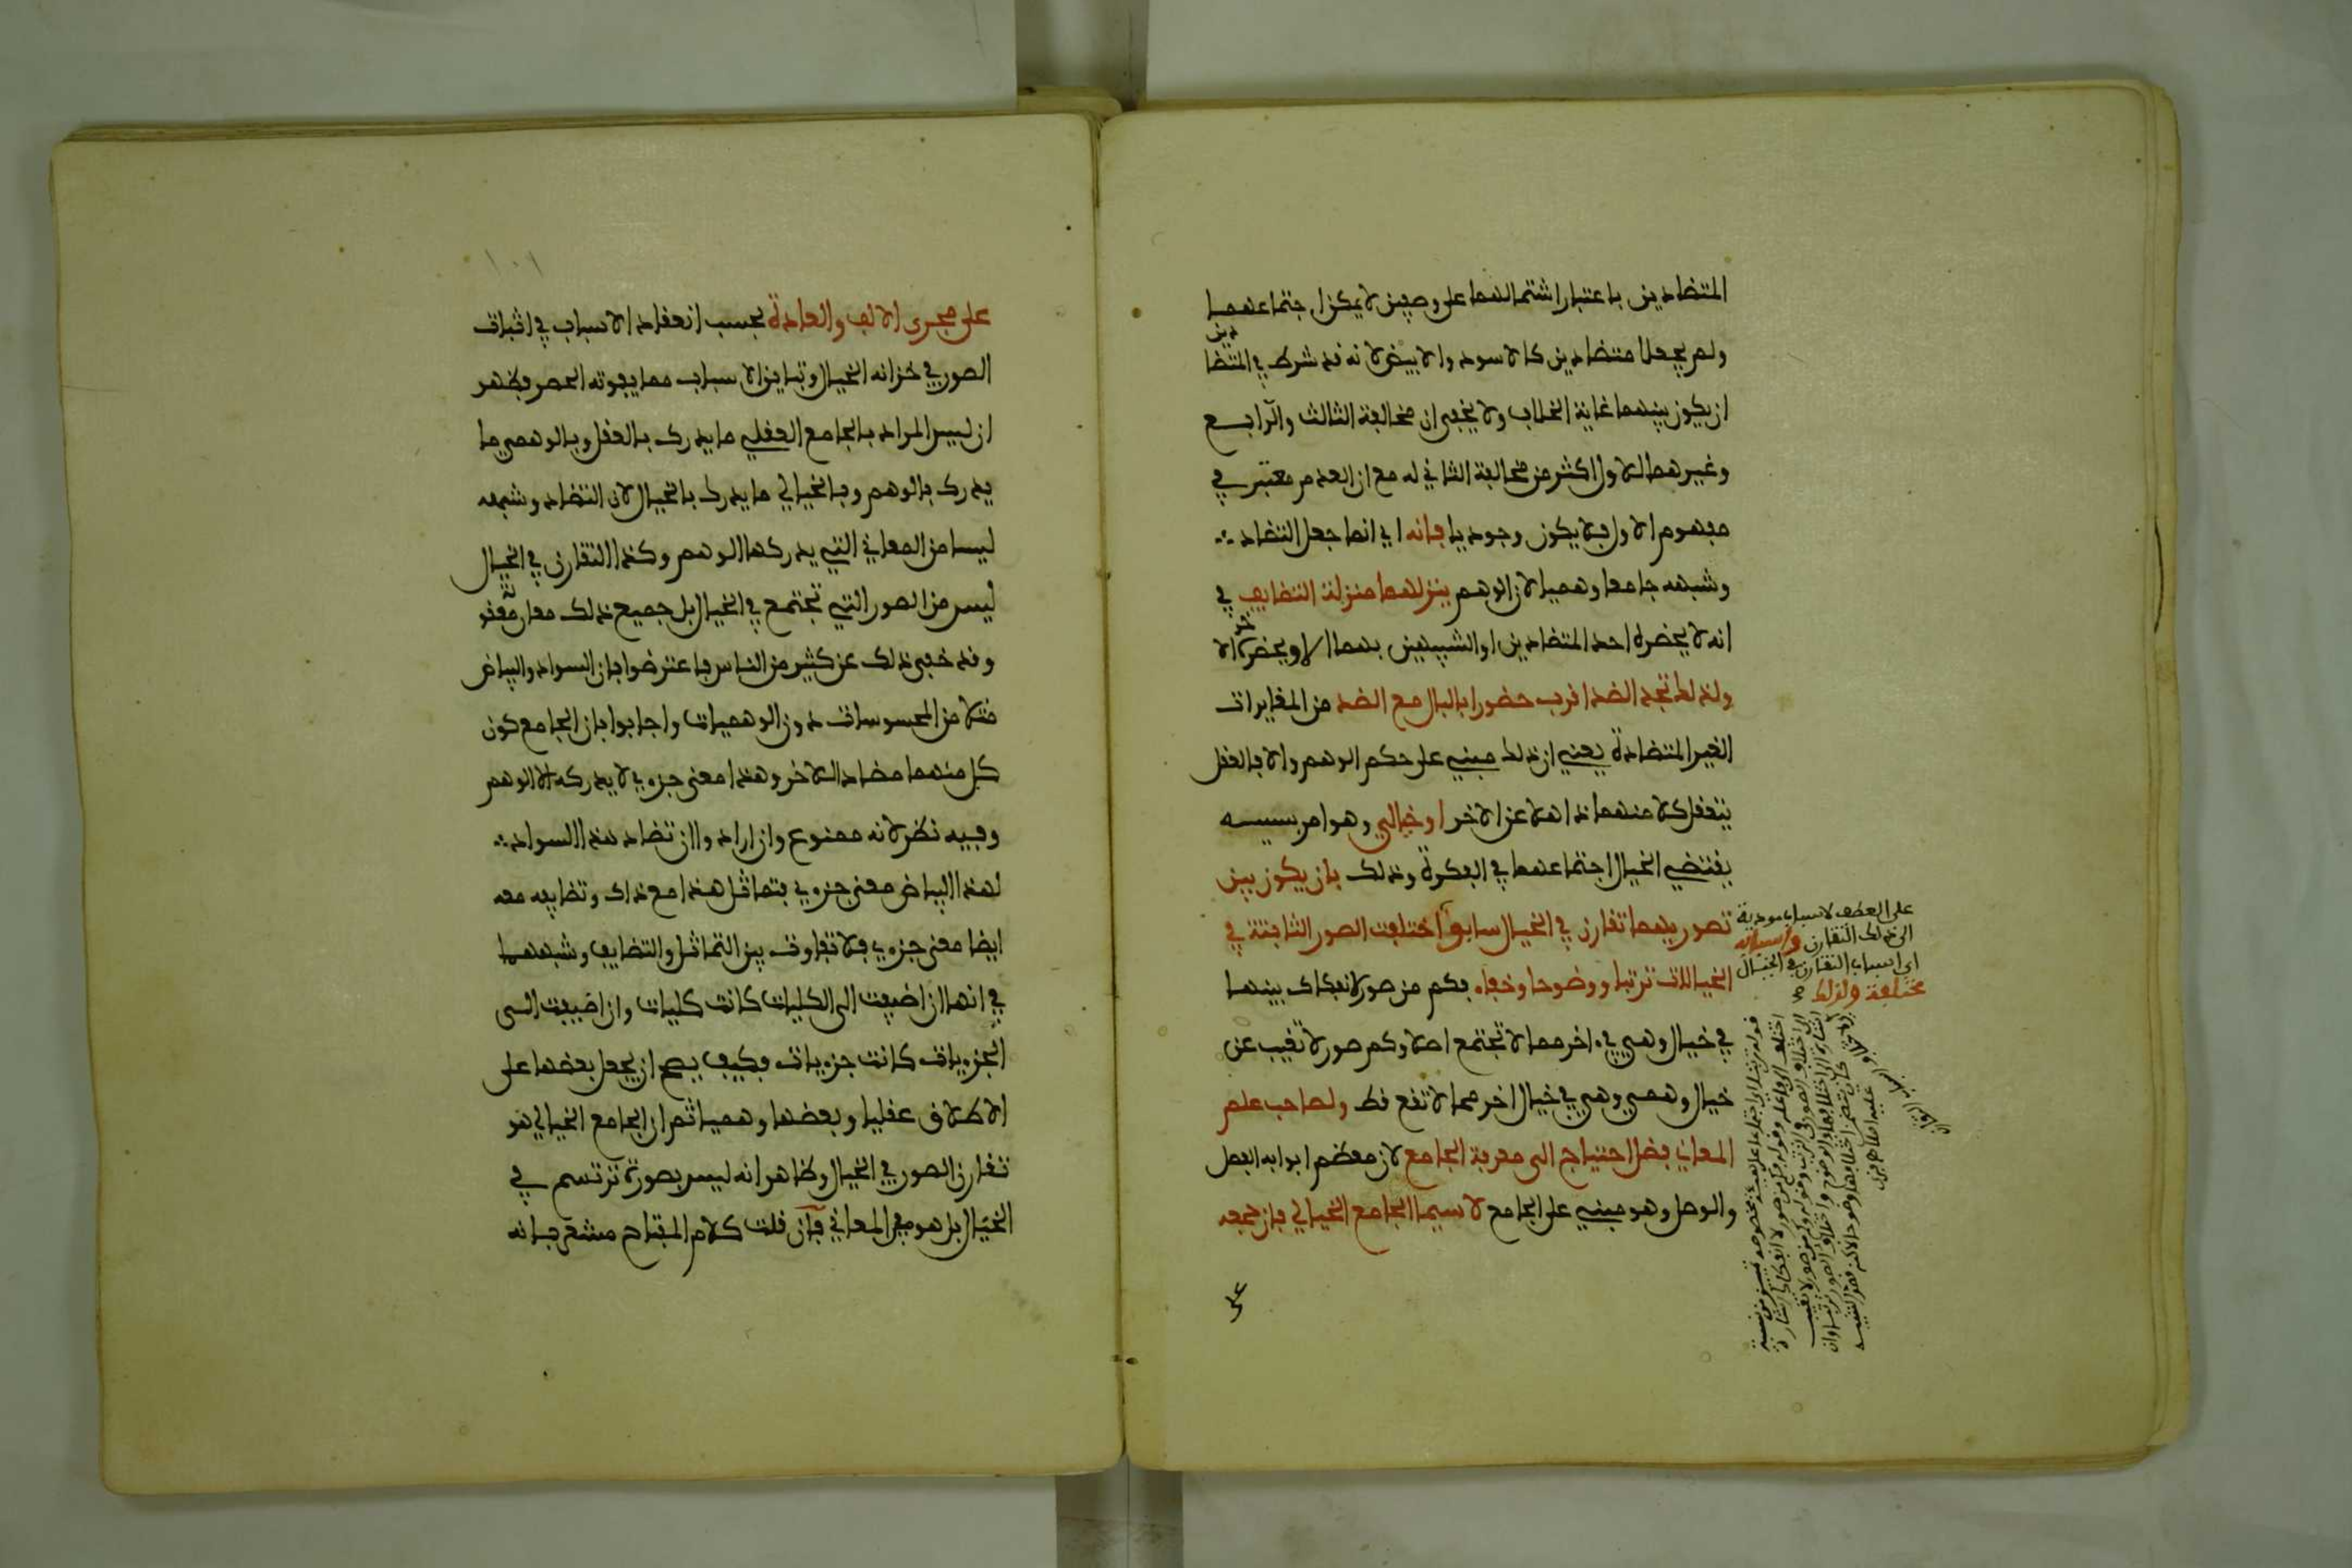 المتضادين باعتبار اشتمالهما على وصفين لا يمكن اجتماعهما
ولم يجعلا متضادين كالاسود والابيض لانه قد شرط في المتضادين
ان يكون بينهما غاية الخلاف ولا يخفى ان مخالفة الثالث والرابع
وغيرهما للاول اكثر من مخالفة الثاني له مع ان العدم معتبر في
مفهوم الاول فلا يكون وجوديا فانه اي انما جعل التضاد
وشبهه جامعا وهميا لان الوهم ينزلهما منزلة التضايف في
انه لا يحضره احد المتضادين او الشبيهين بهما الا ويحضره الاخر
ولذلك تجد الضد اقرب حضورا بالبال مع الضد من المغايرات
الغير المتضادة يعني ان ذلك مبني على حكم الوهم والا فالعقل
يتعقل كلا منهما ذاهلا عن الاخر او خيالي وهو امر بسببه
يقتضي الخيال اجتماعهما في الفكرة وذلك بان يكون بين
تصوريهما تقارن في الخيال سابق اختلفت الصور الثابتة في
الخيالات ترتبا ووضوحا وخفاء فكم من صور لا انفكاك بينهما
في خيال وهي في اخر مما لا تجتمع اصلا وكم صور لا تغيب عن
خيال وهي وهي في خيال اخر مما لا تقع قط ولصاحب علم
المعاني فضل احتياج الى معرفة الجامع لان معظم ابوابه الفصل
والوصل وهو مبني على الجامع لا سيما الجامع الخيالي فان جمعه
على
على العطف لاسباب مودية
الى ذلك التقارن واسبابه
اي اسباب التقارن في الخيال
مختلفة ولذلك
١٠١
على مجرى الالف والعادة بحسب انعقاد الاسباب في اثبات
الصور في خزانه الخيال وتباين الاسباب مما يفوته الحصر فظهر
ان ليس المراد بالجامع العقلي ما يدرك بالعقل وبالوهمي ما
يدرك بالوهم وبالخيالي ما يدرك بالخيال لان التضاد وشبهه
ليسا من المعاني التي يدركها الوهم وكذا التقارن في الخيال
ليس من الصور التي تجتمع في الخيال بل جميع ذلك معان معقولة
وقد خفي ذلك عن كثير من الناس فاعترضوا بان السواد والبياض
مثلا من المحسوسات دون الوهميات واجابوا بان الجامع كون
كل منهما مضاد للاخر وهذا معنى جزءي لا يدركه الا الوهم
وفيه نظر لانه ممنوع وان ارادوا ان تضاد هذا السواد
لهذا البياض معنى جزءي فتماثل هذا مع ذاك وتضايفه معه
ايضا معنى جزءي فلا تفاوت بين التماثل والتضايف وشبههما
في انها ان اضيفت الى الكليات كانت كليات وان اضيفت الى
الجزءيات كانت جزءيات فكيف يصح ان يجعل بعضها على
الاطلاق عقليا وبعضها وهميا ثم ان الجامع الخيالي هو
تقارن الصور في الخيال وظاهر انه ليس بصورة ترتسم في
الخيال بل هو من المعاني فان قلت كلام المفتاح مشعر بانه